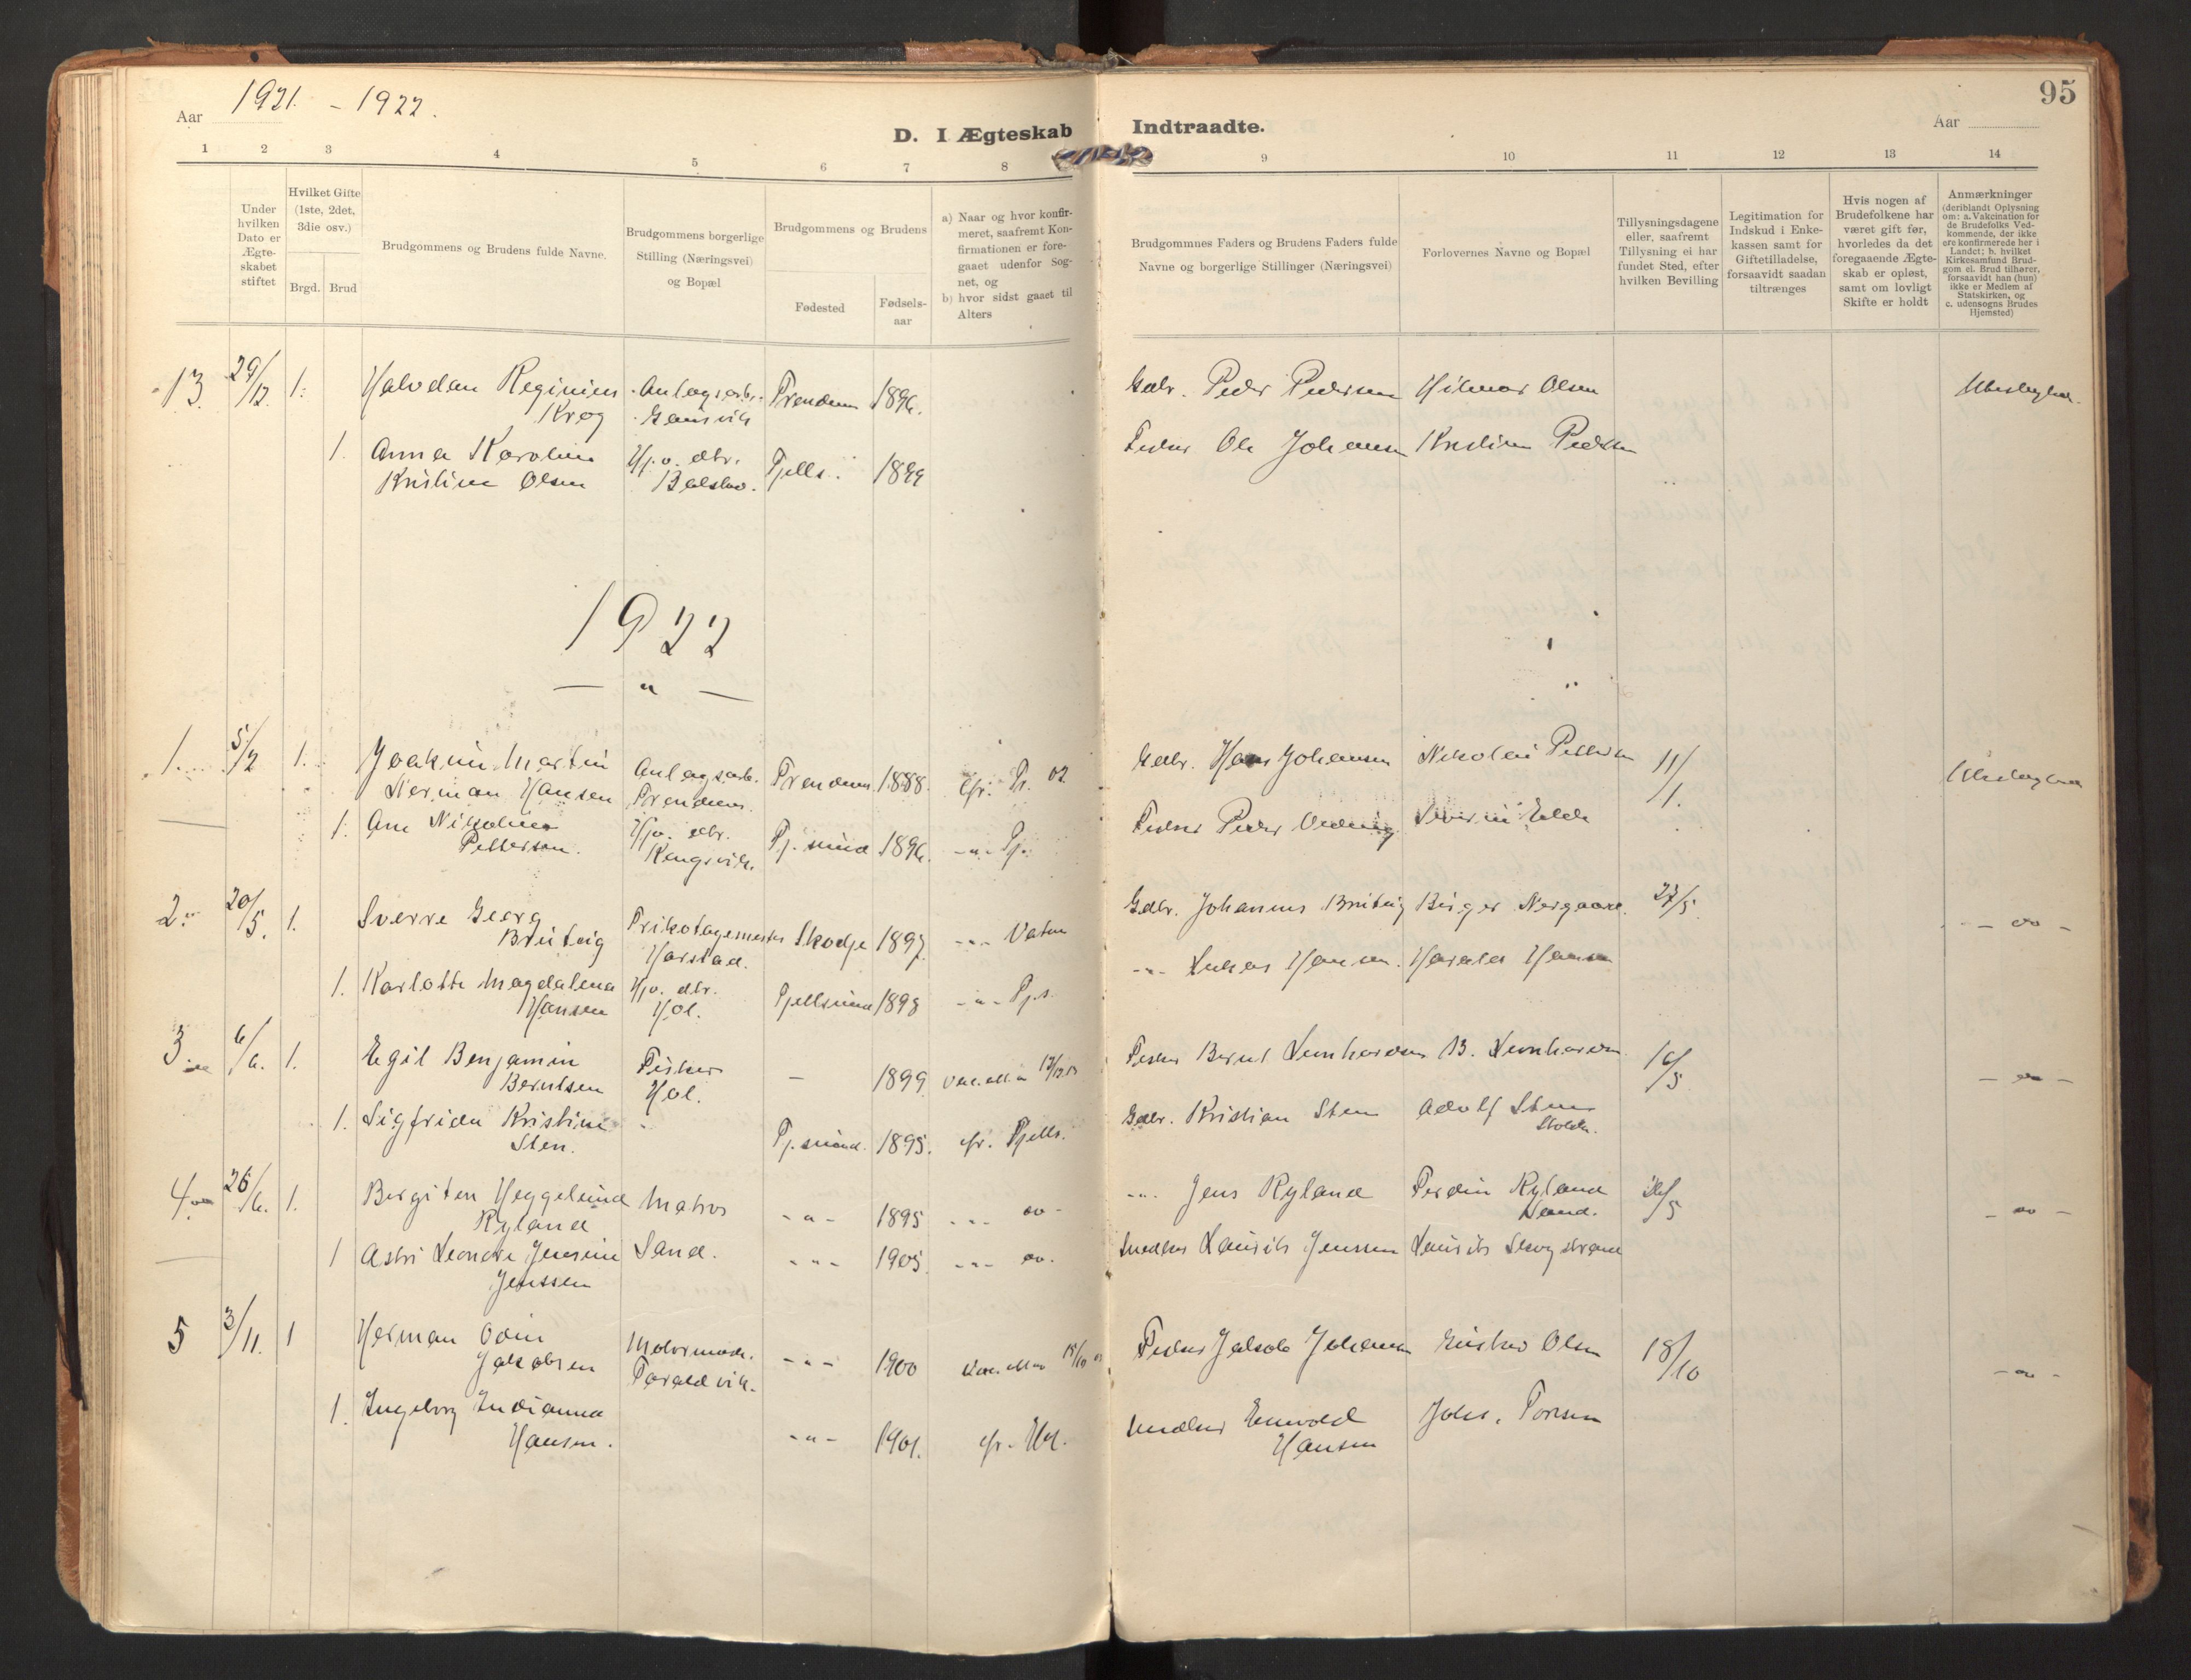 Aar 1921. - 1922.
D. I Ægteskab
Indtraadte.
Aar
95
1 2 3 4 5 6 7 8
9 10 11 12 13 14
Under hvilken Dato er Ægte-skabet stiftet
Hvilket Gifte (1ste, 2det, 3die osv.)
Brgd. Brud
Brudgommens og Brudens fulde Navne.
Brudgommens borgerlige Stilling (Næringsvei) og Bopæl
Brudgommens og Brudens
Fødested
Fødsels-aar
a) Naar og hvor konfir-meret, saafremt Kon-firmationen er fore-gaaet udenfor Sog-net, og
b) hvor sidst gaaet til Alters
Brudgommnes Faders og Brudens Faders fulde Navne og borgerlige Stillinger (Næringsvei)
Forlovernes Navne og Bopæl
Tillysningsdagene eller, saafremt Tillysning ei har fundet Sted, efter hvilken Bevilling
Legitimation for Indskud i Enke-kassen samt for Giftetilladelse, forsaavidt saadan tiltrænges
Hvis nogen af Brudefolkene har været gift før, hvorledes da det foregaaende Ægte-skab er opløst, samt om lovligt Skifte er holdt
Anmærkninger (deriblandt Oplysning om: a. Vakcination for de Brudefolks Ved-kommende, der ikke ere konfirmerede her i Landet; b. hvilket Kirkesamfund Brud-gom el. Brud tilhører, forsaavidt han (hun) ikke er Medlem af Statskirken, og c. udensogns Brudes Hjemsted)
13. 29/12. 1. Halvdan Reginius Anlagsarb. Trendenes 1896. Gdbr. Peder Pedersen Hilmar Olsen
Krog Gausvik
1. Anna Karoline Hjv. dtr. Fjells. 1899 Fisker Ole Johansen Kristian Pedersen
Kristine Olsen
1922
— " —
1. 5/2 1. Joakim Martin Anlagsarb. 1888. cfr. Tr. 02 Gdbr. Hans Johansen Nikolai Pettersen 11/1.
Nerman Hansen
1. Ane Nikoline Hjv. dtr. Fj.sund 1896. -"- Fj. Fisker Peder
Pettersen. Kongsvik.
2. 20/5. 1. Sverre Georg Trikotagemester Skodje 1897. -"- Vatne Gdbr. Johannes Breiteig Birger Nergaard. 27/5. -"-
Breiteig Harstad.
1. Karlotte Magdalena Hjv. dtr. Fjellsund 1898 -"- Fj.s. -"- Hansen. Harald Hansen
Hansen Hol.
3. 6/6. 1. Egil Benjamin Fisker — 1899 Fisker Bernt Lernhardsen B. Lernhardsen 16/5 -"-
Berntsen Hol.
1. Sigfrida Kristine " Fj.sund. 1895. cfr. Fjells. Gdbr. Kristian Sten Adolf Sten
Sten.
4. 26/6. 1. Birgiten Heggelund Matros -"- 1895 -"- -"- Jens Ryland Ferdin Ryland -"-
Ryland Sand.
1 Astri Leonore Jensine Sand. -"- 1905. -"- Smedker Laurits Jenssen Laurits Skogstrand
Jenssen
5 3/11. 1 Herman Odin -"- 1900 Fisker Jakob Johansen Gustav Olsen 18/10 -"-
Jakobsen
1. Ingeborg Indianna -"- 1901. cfr. Hol. Hansen Johs. Torisen
Hansen.